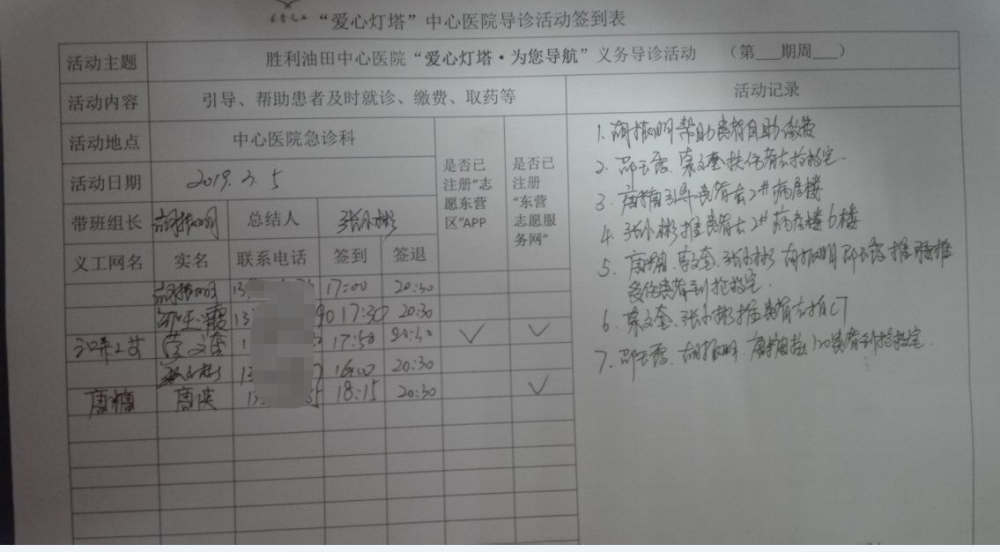 “爱心灯塔”中心医院导诊活动签到表
活动主题 胜利油田中心医院“爱心灯塔·为您导航”义务导诊活动 （第___期周___）
活动内容 引导、帮助患者及时就诊、缴费、取药等 活动记录
活动地点 中心医院急诊科 是否已注册“志愿东营区”APP 是否已注册“东营志愿服务网”
活动日期 2019.3.5
带班组长 胡振明 总结人 张小彬
义工网名 实名 联系电话 签到 签退
胡振明 13 17:00 20:30
邵玉霞 13 17:30 20:30
17:50 20:30 ✓ ✓
张小彬 13 16:00 20:30
唐楠 18:15 20:30 ✓
1. 胡振明帮助患者自助缴费
2. 邵玉霞、 扶伤者去抢救室.
3. 唐楠引导患者去2#病房楼
4. 张小彬推患者去2#病房楼6楼
5. 唐楠、 张小彬 胡振明 邵玉霞
患者到抢救室.
6. 张小彬推患者去拍CT
7. 邵玉霞、胡振明、唐楠 120患者到抢救室